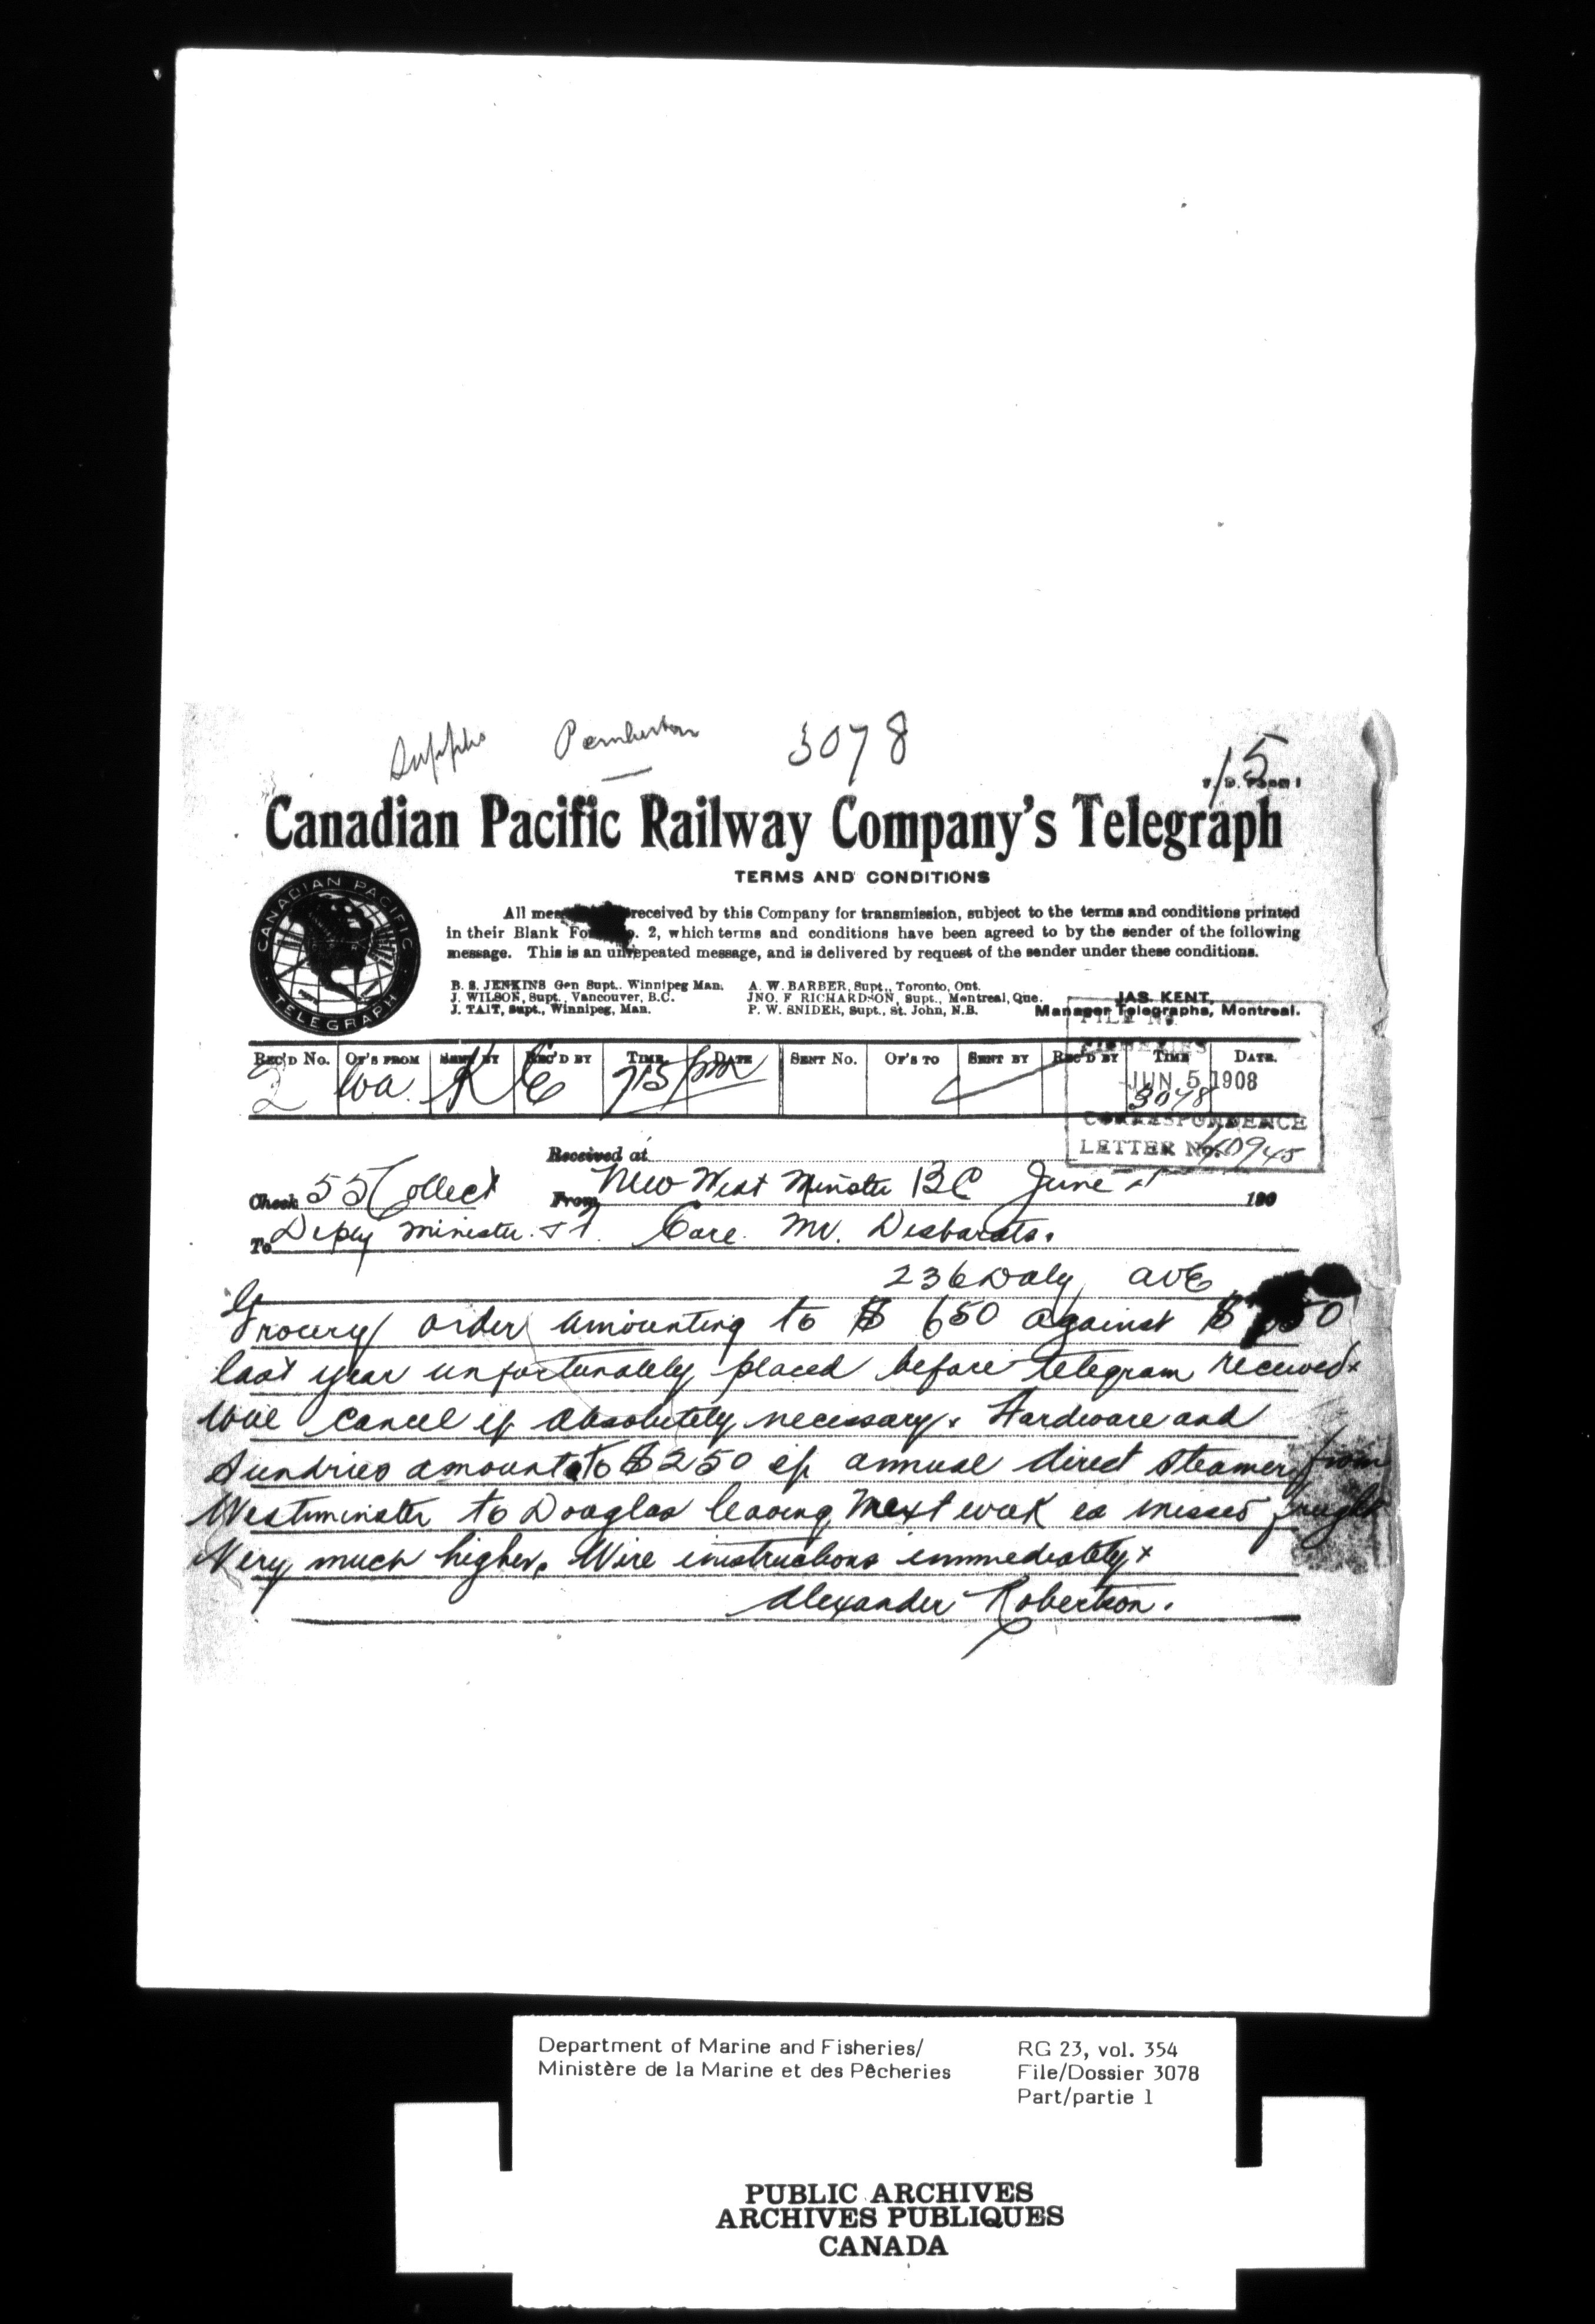 Pemberton 3078
15
Canadian Pacific Railway Company's Telegraph
TERMS AND CONDITIONS
CANADIAN PACIFIC
TELEGRAPH
All received by this Company for transmission, subject to the terms and conditions printed
in their Blank 2, which terms and conditions have been agreed to by the sender of the following
message. This is an unrepeated message, and is delivered by request of the sender under these conditions.
B. S. JENKINS Gen Supt.. Winnipeg Man. A. W. BARBER, Supt., Toronto, Ont.
J. WILSON, Supt., Vancouver, B.C. JNO. F RICHARDSON, Supt., Montreal, Que. JAS. KENT,
J. TAIT, Supt., Winnipeg, Man. P. W. SNIDER, Supt., St. John, N.B. Manager Telegraphs, Montreal.
FILE No.
FISHERIES
REC'D No. OF'S FROM SENT BY REC'D BY TIME DATE SENT No. OF'S TO SENT BY REC'D BY TIME DATE.
2 Wa. K 715 pm
JUN 5 1908
3078
CORRESPONDENCE
LETTER No.
Received at
Check 55 Collect From New West Minster BC June 190
To Minister Care. Mr. Desbarats.
236 Daly AVE
Grocery order amounting to $ 650 against $
last year unfortunately placed before telegram received x
Will cancel if absolutely necessary. Hardware and
Sundries amount to $250 if annual direct steamer from
Westminster to Douglas leaving next week is missed freight
Very much higher. Wire instructions immediately x
Alexander Robertson.
Department of Marine and Fisheries/ RG 23, vol. 354
Ministère de la Marine et des Pêcheries File/Dossier 3078
Part/partie 1
PUBLIC ARCHIVES
ARCHIVES PUBLIQUES
CANADA